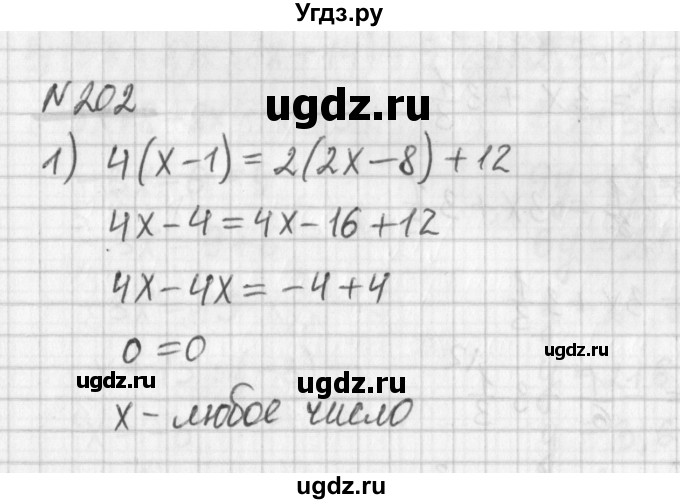 Угдз.ру
N 202
ugdz.ru
1) 4(x-1)=2(2x-8)+12
4x-4=4x-16+12
4x-4x=-4+4
0=0
ugdz.ru
ugdz.ru
ugdz.ru
x-любое число
ugdz.ru
ugdz.ru